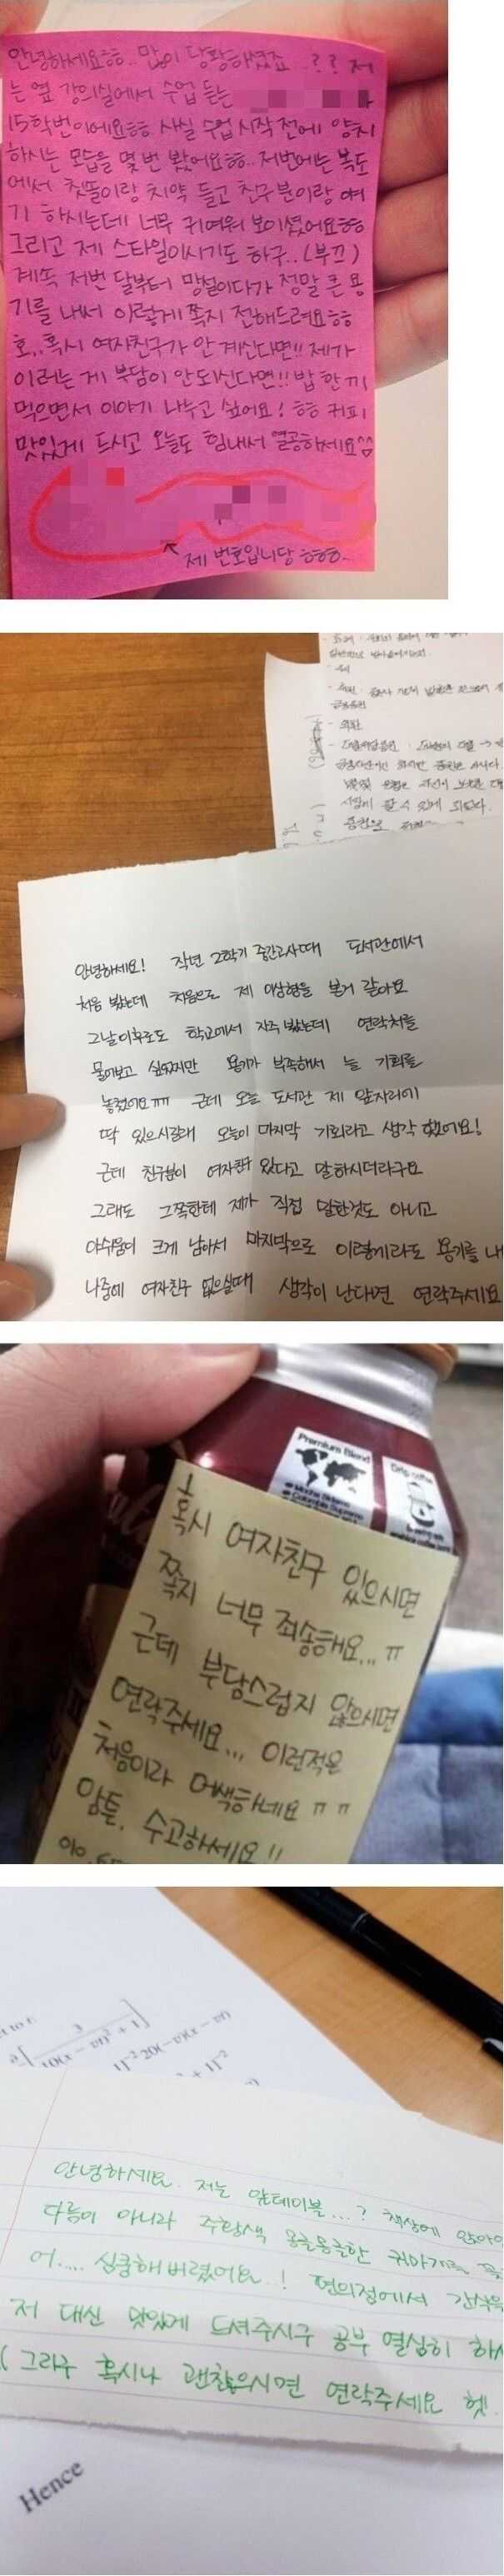 안녕하세요ㅎㅎ.. 많이 당황하셨죠..?? 저
는 옆 강의실에서 수업 듣는
15학번이에요ㅎㅎ 사실 수업 시작 전에 양치
하시는 모습을 몇 번 봤어요ㅎㅎ.. 저번에는 복도
에서 칫뚤이랑 치약 들고 친구분이랑 얘
기 하시는데 너무 귀여워 보이셨어요ㅎㅎ
그리고 제 스타일이시기도 하구..(부끄)
계속 저번 달부터 망설이다가 정말 큰 용
기를 내서 이렇게 쪽지 전해드려요ㅎㅎ
호,,혹시 여자친구가 안 계신다면!! 제가
이러는 게 부담이 안되신다면!! 밥 한끼
먹으면서 이야기 나누고 싶어요! ㅎㅎ 커피
맛있게 드시고 오늘도 힘내서 열공하세요^^
제 번호입니당 ㅎㅎㅎ...
안녕하세요! 작년 2학기 중간고사때 도서관에서
처음 봤는데 처음으로 제 이상형을 본거 같아요
그날이후로도 학교에서 자주 봤는데 연락처를
물어보고 싶었지만 용기가 부족해서 늘 기회를
놓쳤어요ㅠㅠ 근데 오늘 도서관 제 앞자리에
딱 있으시길래 오늘이 마지막 기회라고 생각 했어요!
근데 친구분이 여자친구 있다고 말하시더라구요
그래도 그쪽한테 제가 직접 말한것도 아니고
아쉬움이 크게 남아서 마지막으로 이렇게라도 용기를 내
나중에 여자친구 없으실때 생각이 난다면 연락주세요
Premium Blend
Drip coffee
혹시 여자친구 있으시면
쪽지 너무 죄송해요... ㅠ
근데 부담스럽지 않으시면
연락주세요... 이런적은
처음이라 어색하네요 ㅠㅠ
암튼, 수고하세요!!
010.
안녕하세요. 저는 앞테이블...? 책상에 앉아
다름이 아니라 주황색 동글동글한 귀마개를
어.... 심쿵해버렸어요.! 편의점에서 간식을
저 대신 맛있게 드셔주시구 공부 열심히 하
(그리구 혹시나 괜찮으시면 연락주세요 헷.
Hence